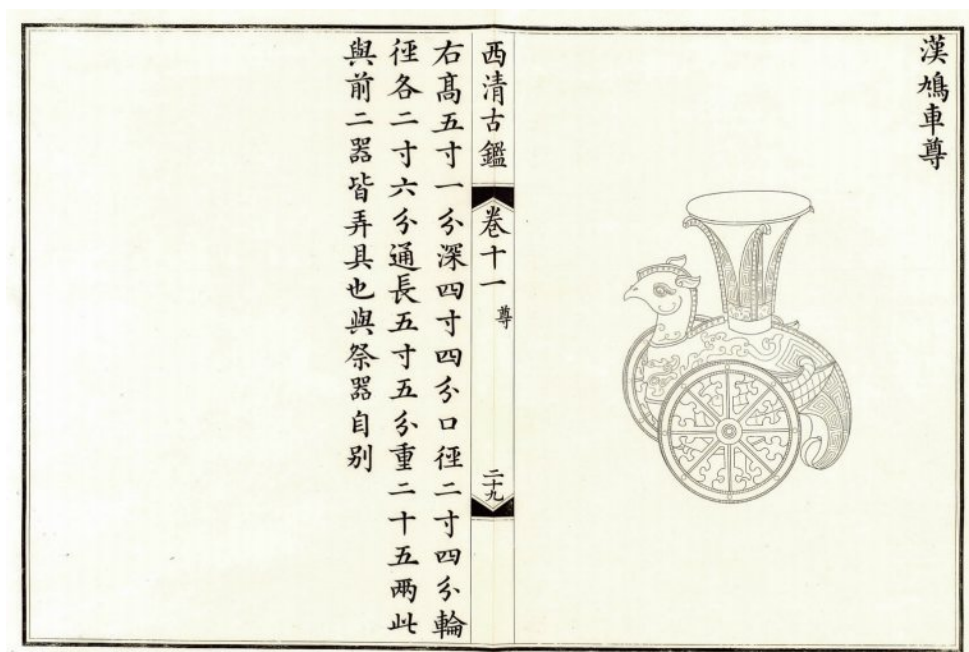 漢鳩車尊
西清古鑑
卷十一
尊
二十九
右高五寸一分深四寸四分口徑二寸四分輪
徑各二寸六分通長五寸五分重二十五兩此
與前二器皆弄具也與祭器自別